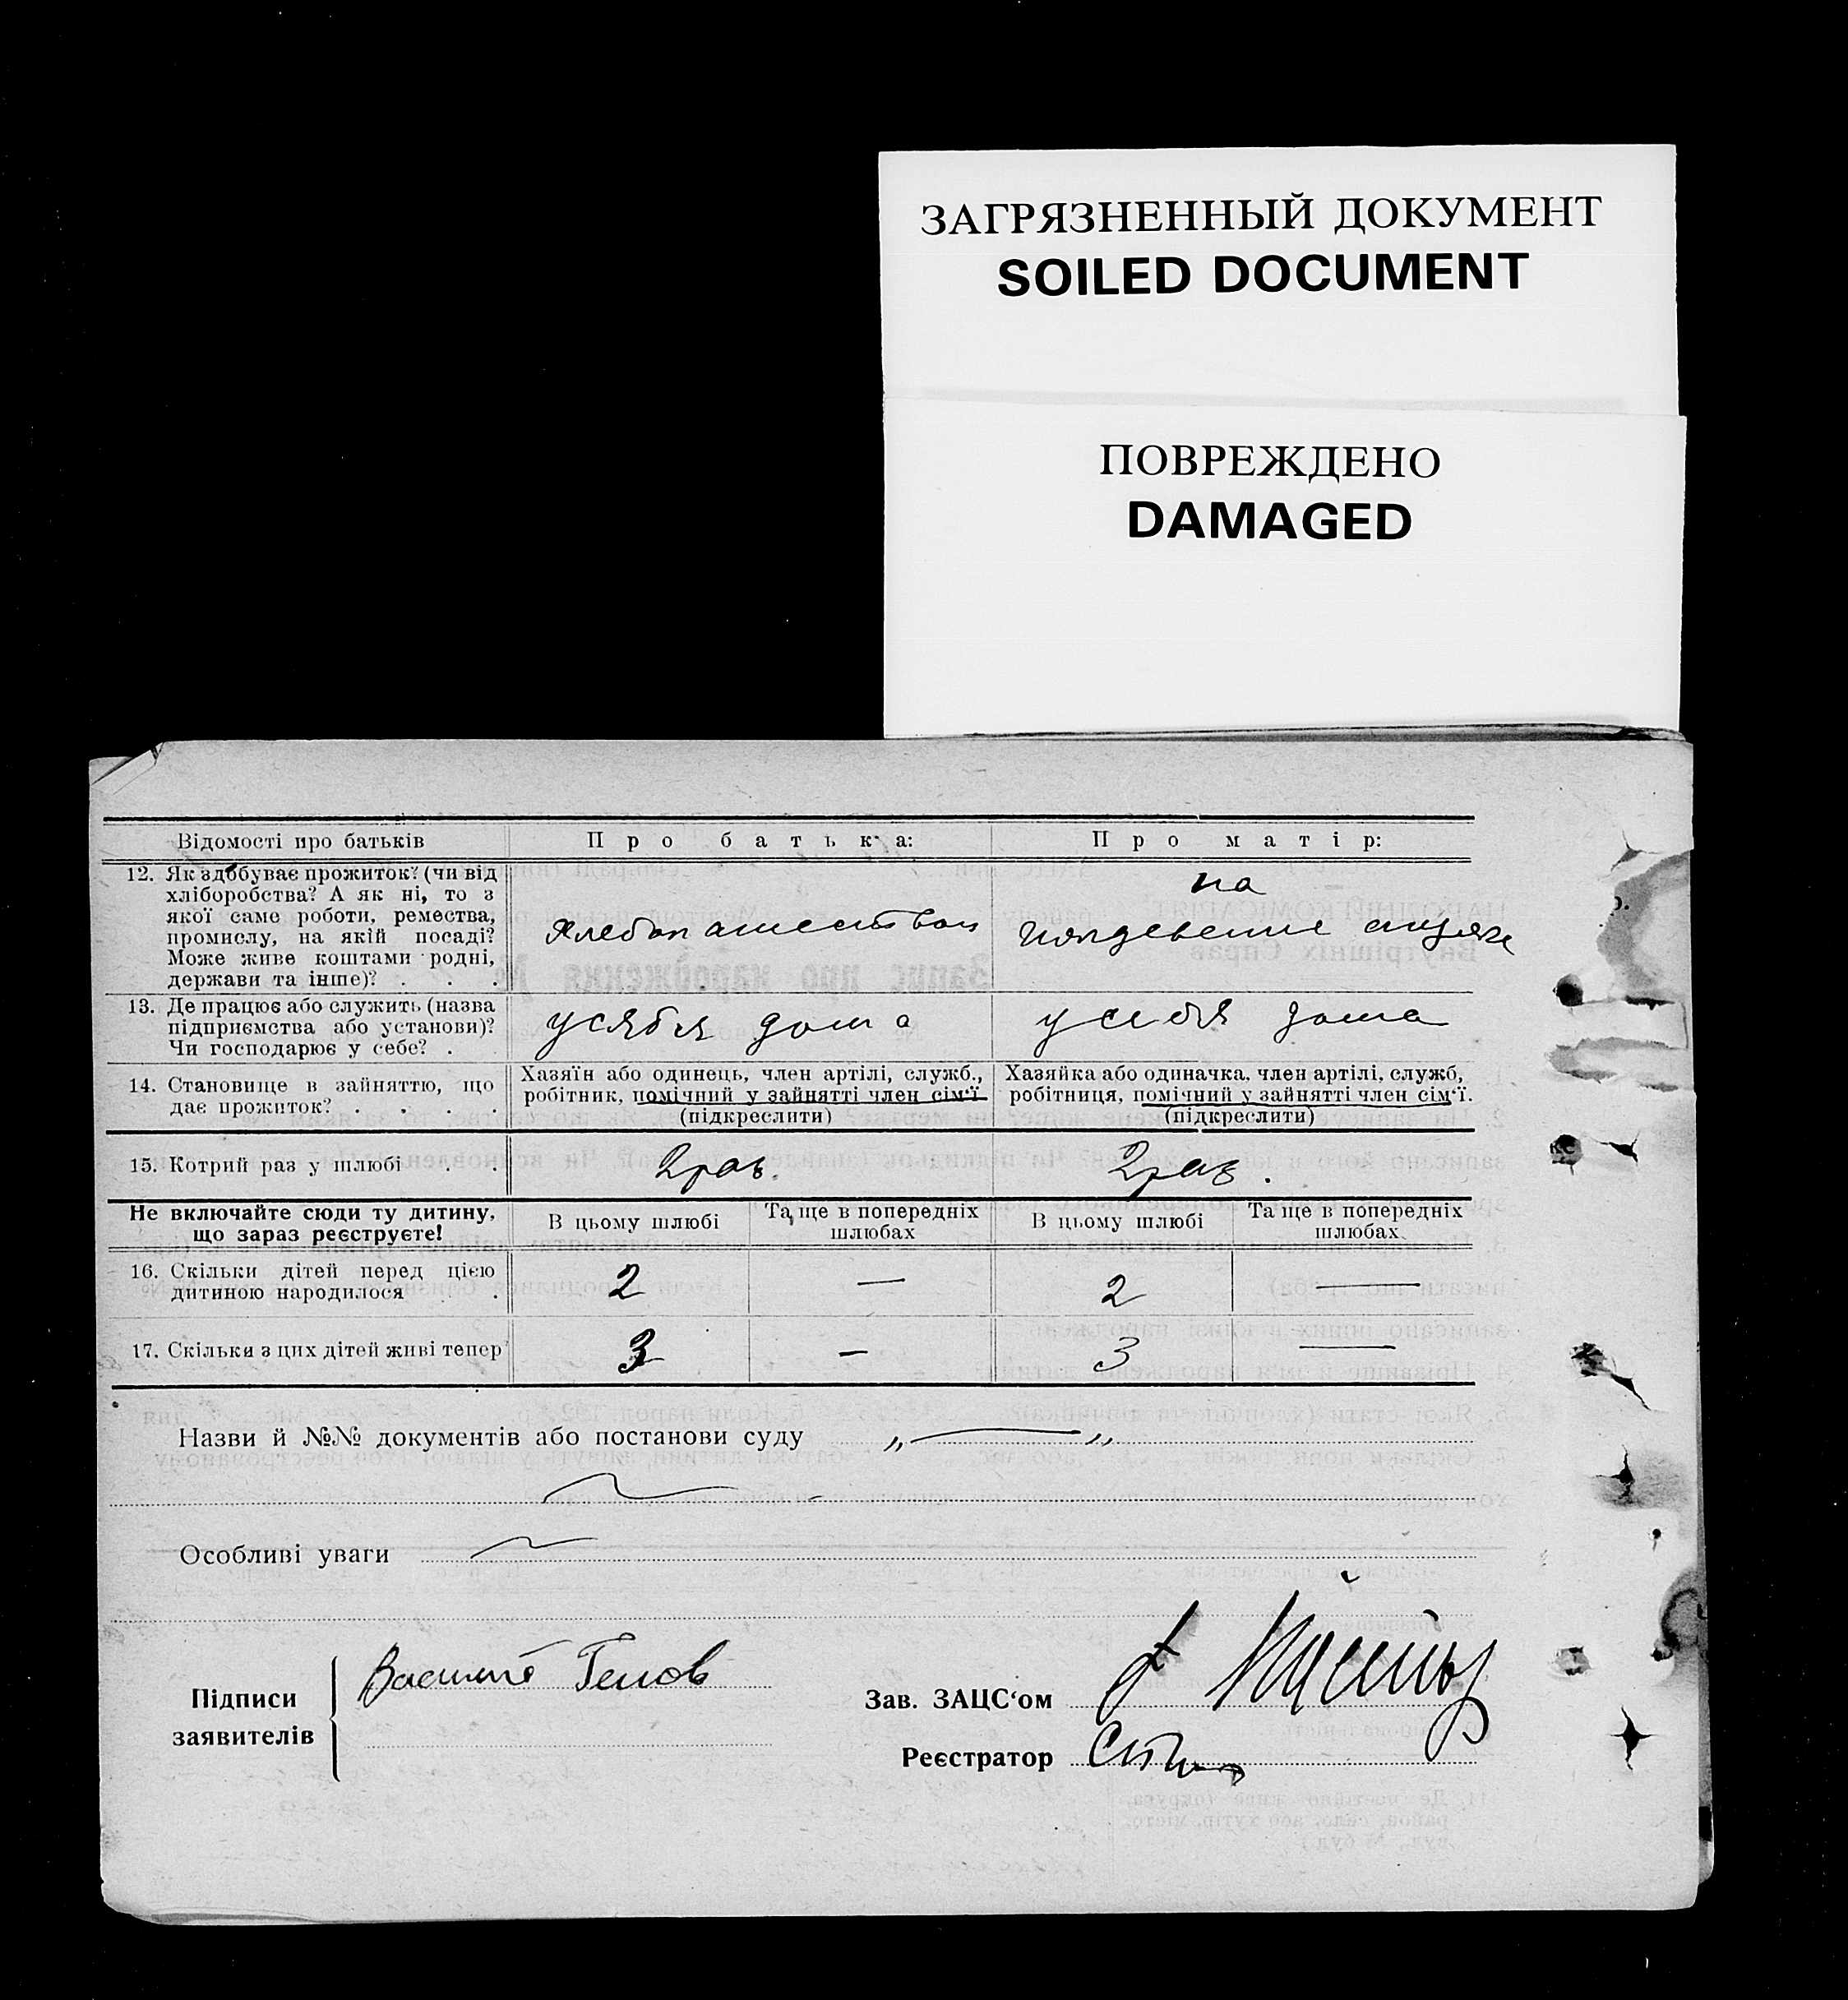 ЗАГРЯЗНЕННЫЙ ДОКУМЕНТ
SOILED DOCUMENT
ПОВРЕЖДЕНО
DAMAGED
Відомості про батьків
Про батька:
Про матір:
12. Як здобуває прожиток? (чи від
хліборобства? А як ні, то з
якої саме роботи, ремества,
промислу, на якій посаді?
Може живе коштами родні,
держави та інше)? . . .
на
13. Де працює або служить (назва
підприємства або установи)?
Чи господарює у себе? .
усябя дома
у себя дома
14. Становище в зайняттю, що
дає прожиток? . . . .
Хазяїн або одинець, член артілі, служб.,
робітник, помічний у зайнятті член сім'ї
(підкреслити)
Хазяйка або одиначка, член артілі, служб,
робітниця, помічний у зайнятті член сім'ї.
(підкреслити)
15. Котрий раз у шлюбі . .
2 раз.
2 раз.
Не включайте сюди ту дитину,
що зараз реєструєте!
В цьому шлюбі
Та ще в попередніх
шлюбах
В цьому шлюбі
Та ще в попередніх
шлюбах
16. Скільки дітей перед цією
дитиною народилося . .
2
—
2
—
17. Скільки з цих дітей живі тепер
3
—
3
—
Назви й №№ документів або постанови суду „ — „
Особливі уваги
Підписи
заявителів
Зав. ЗАЦС'ом
Реєстратор